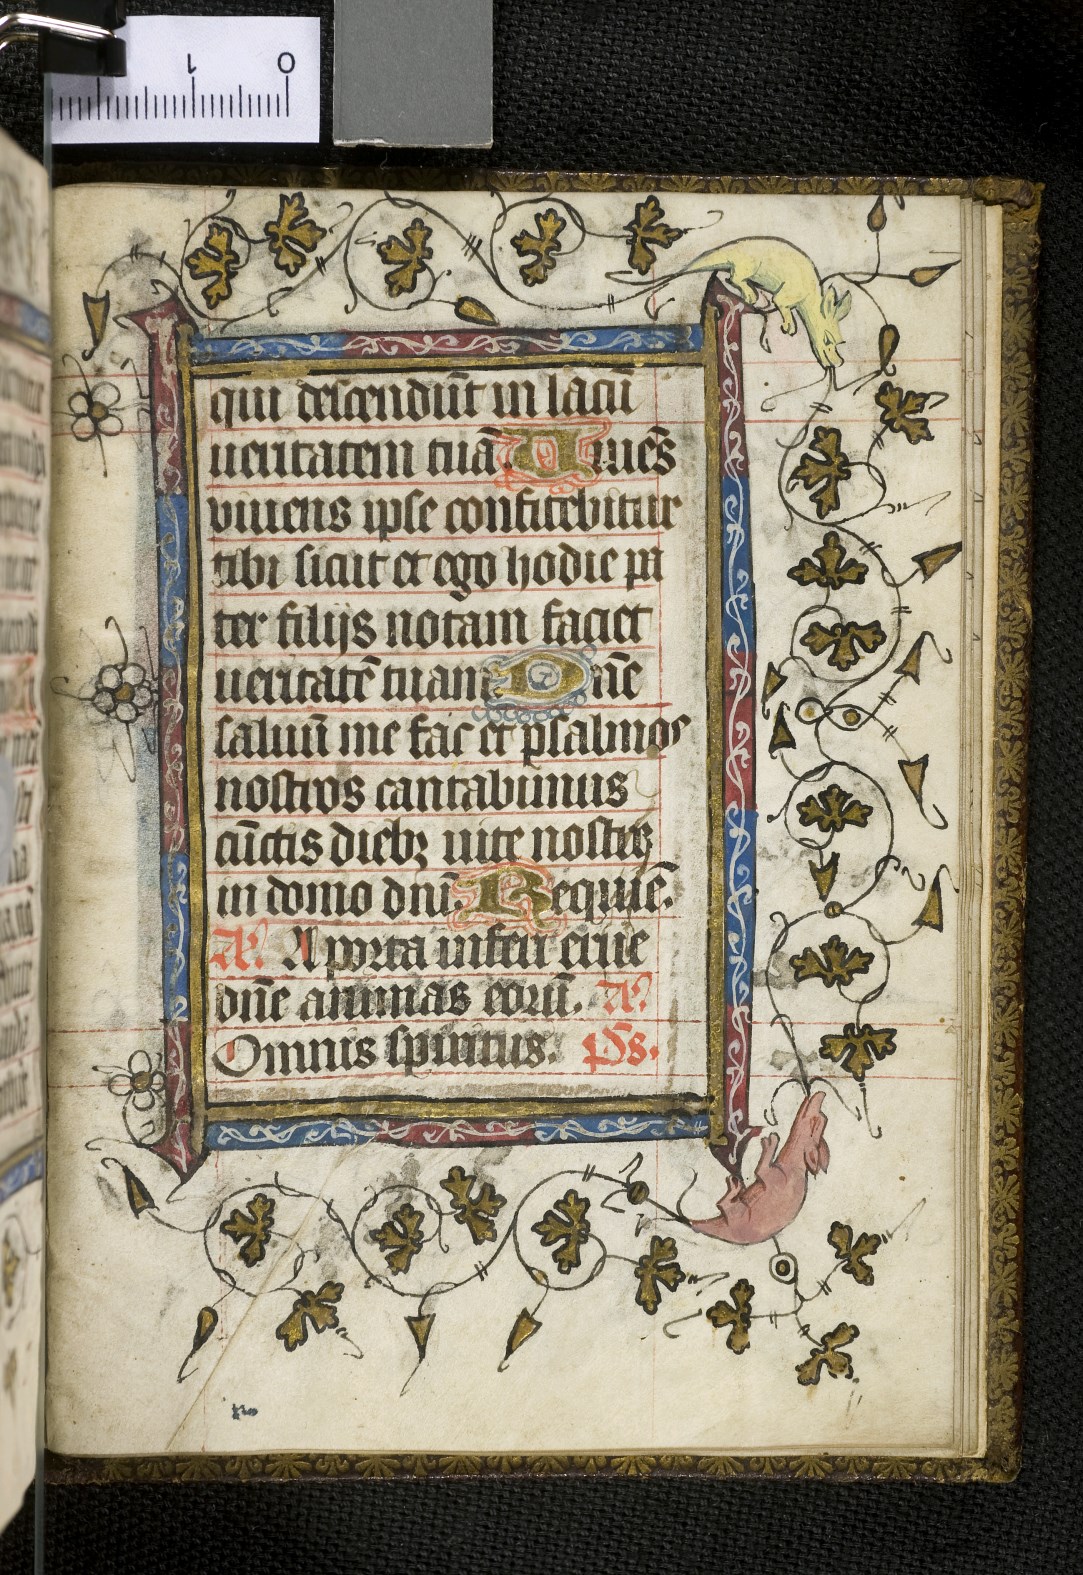 0 1
qui descendūt in lacū
ueritatem tuā. Viuēs
viuens ipse confitebitur
tibi sicut et ego hodie pa
ter filijs notam faciet
ueritatē tuam. Dn̄e
saluū me fac et psalmos
nostros cantabimus
cūctis diebꝫ uite nostrꝫ
in domo dn̄i. Requiē.
A. A porta inferi erue
dn̄e animas eorū. A.
Omnis spiritus. Ps.